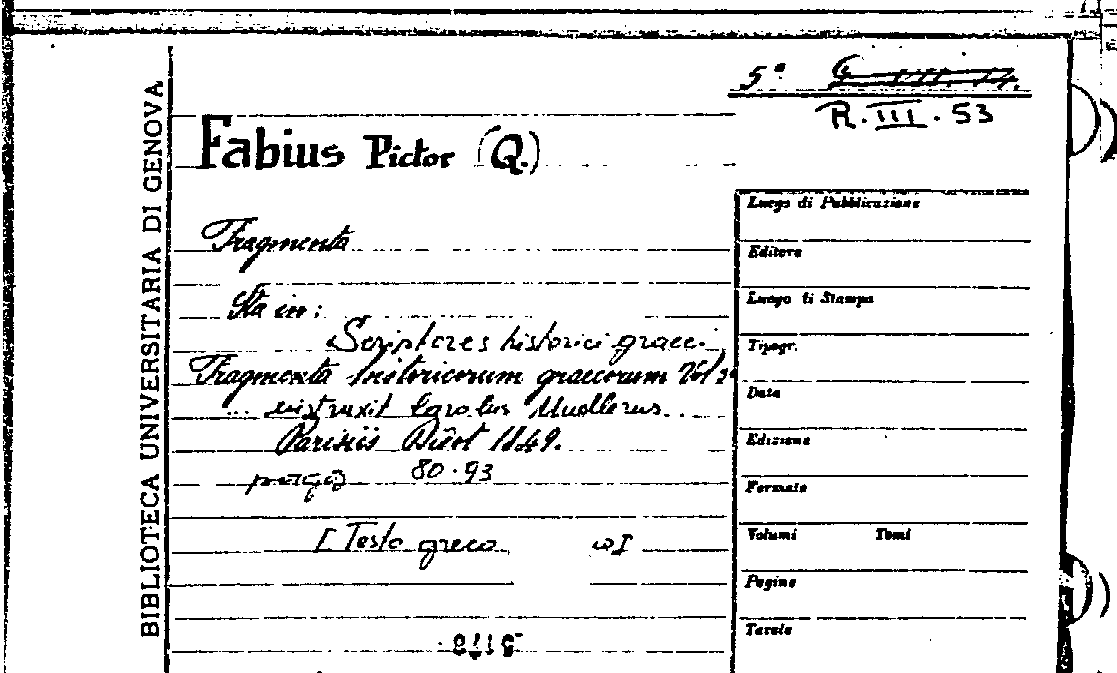 5ª G. III. 14.
R. III. 53
BIBLIOTECA UNIVERSITARIA DI GENOVA
Fabius Pictor (Q.)
Fragmenta
Sta in:
Scriptores historici graeci.
Fragmenta historicorum graecorum Vol 3º
instruxit Carolus Muellerus
Parisiis Didot 1849.
pagg 80-93
[Testo greco
Luogo di Pubblicazione
Editore
Luogo di Stampa
Tipogr.
Data
Edizione
Formato
Volumi Tomi
Pagine
Tavole